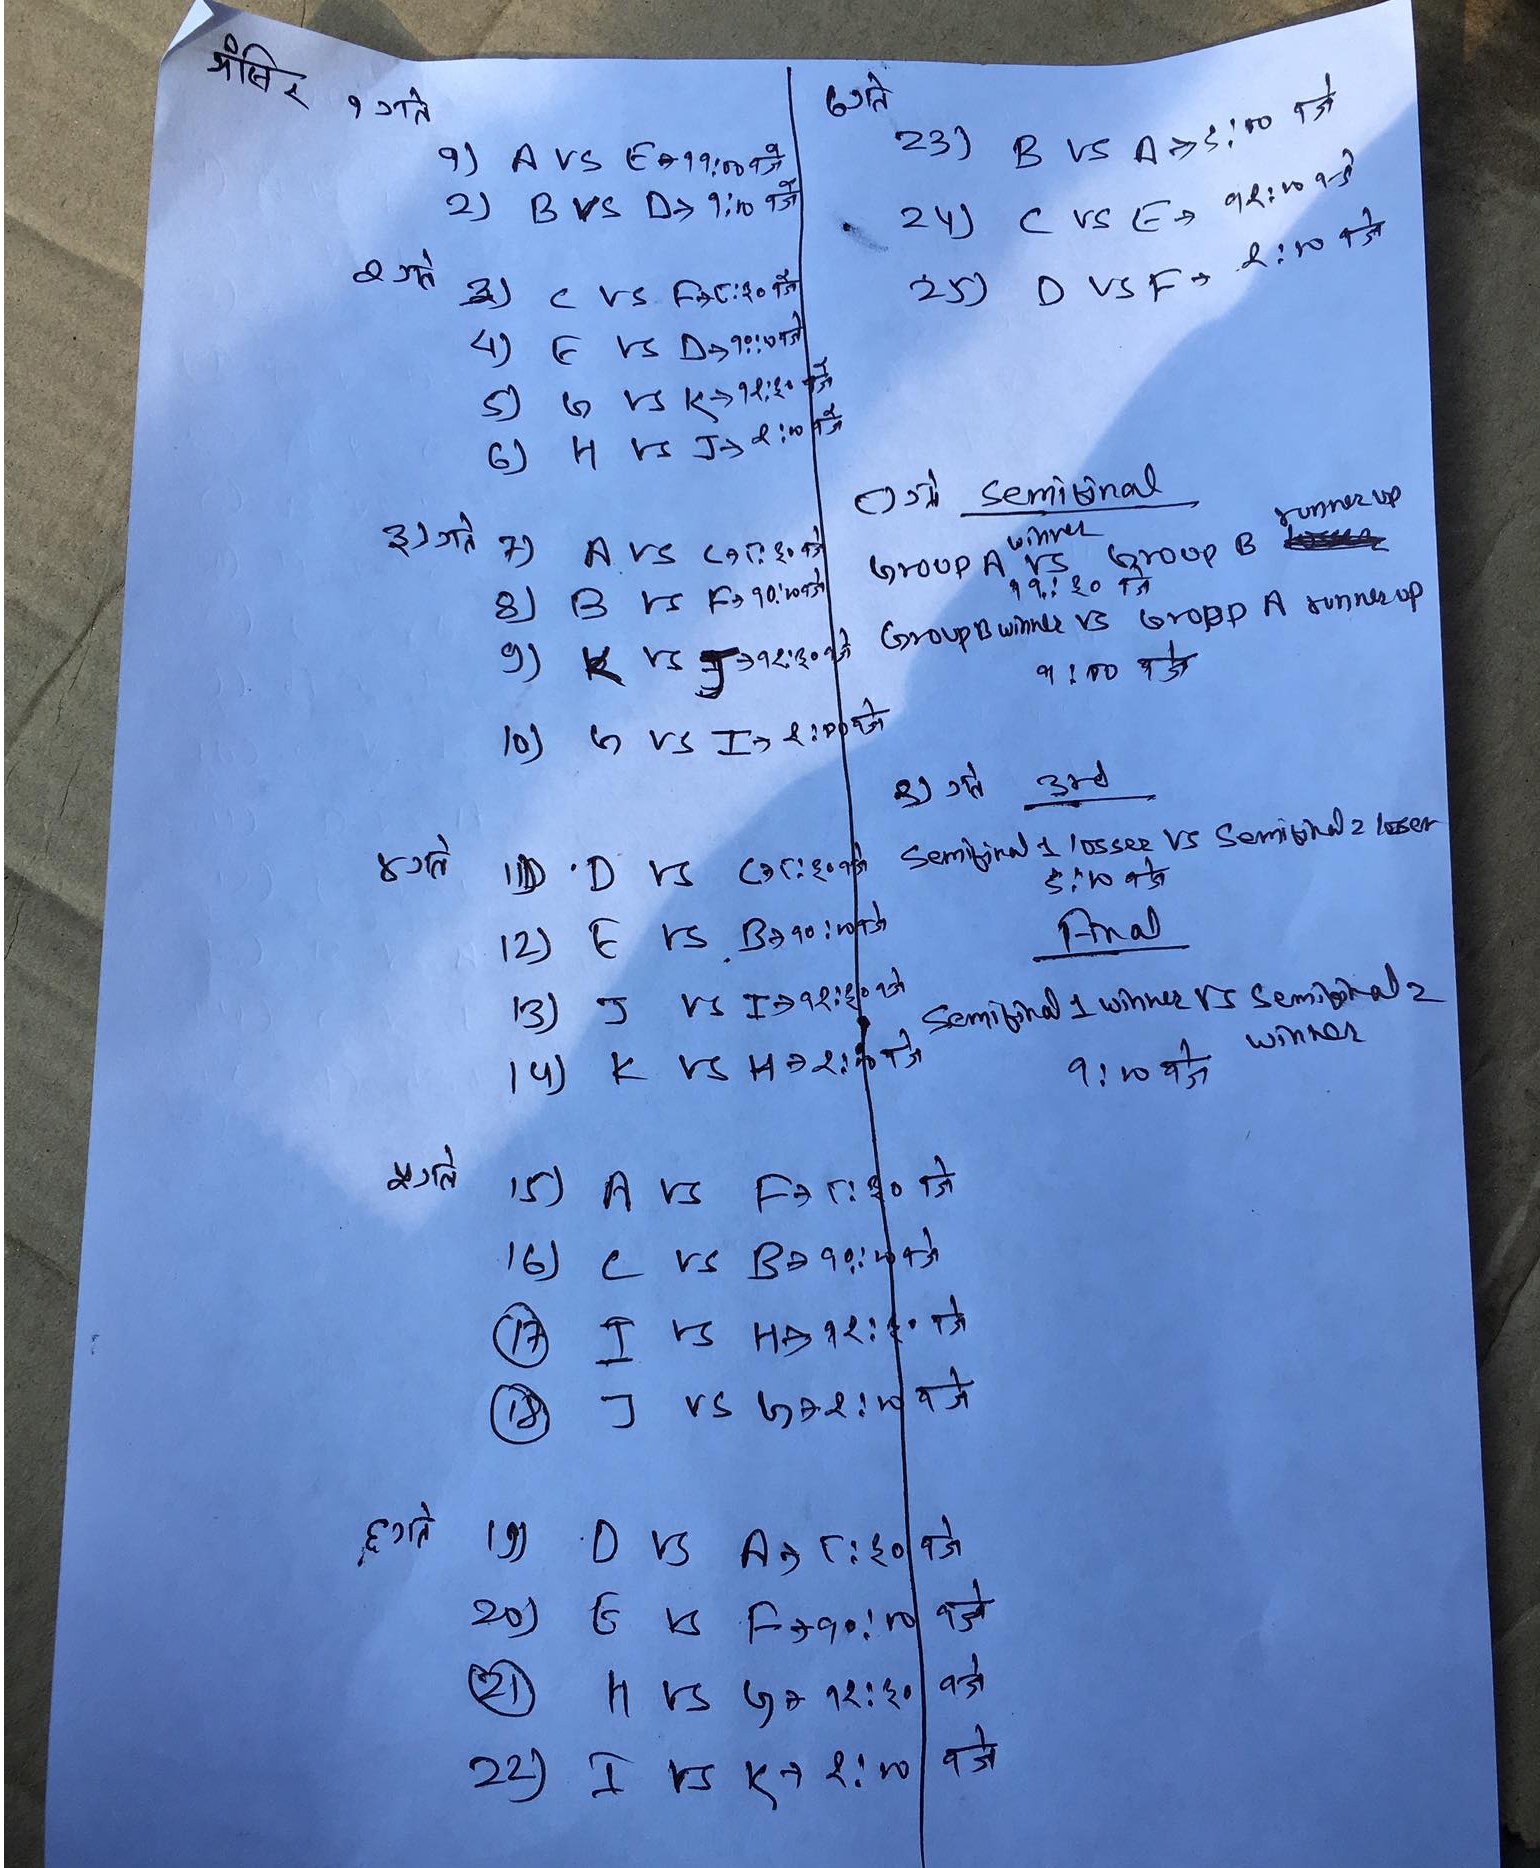 मंसिर १ गते
१) A VS E → ११:०० बजे
2) B VS D → १:०० बजे
२ गते
3) C VS F → ८:३० बजे
4) E VS D → १०:०० बजे
5) G VS K → १२:३० बजे
6) H VS J → २:०० बजे
३) गते 7) A VS C → ८:३० बजे
8) B VS F → १०:०० बजे
9) K VS J → १२:३० बजे
10) G VS I → २:०० बजे
४ गते 11) D VS C → ८:३० बजे
12) E VS B → १०:०० बजे
13) J VS I → १२:३० बजे
14) K VS H → २:०० बजे
५ गते 15) A VS F → ८:३० बजे
16) C VS B → १०:०० बजे
17 I VS H → १२:३० बजे
18 J VS G → २:०० बजे
६ गते 19) D VS A → ८:३० बजे
20) E VS F → १०:०० बजे
21 H VS G → १२:३० बजे
22) I VS K → २:०० बजे
७ गते
23) B VS A → ९:०० बजे
24) C VS E → १२:०० बजे
25) D VS F → २:०० बजे
८) गते Semifinal
Group A winner VS Group B runner up
११:३० बजे
Group B winner VS Group A runner up
१:०० बजे
९) गते 3rd
Semifinal 1 losser VS Semifinal 2 loser
९:०० बजे
Final
Semifinal 1 winner VS Semifinal 2
winner
१:०० बजे